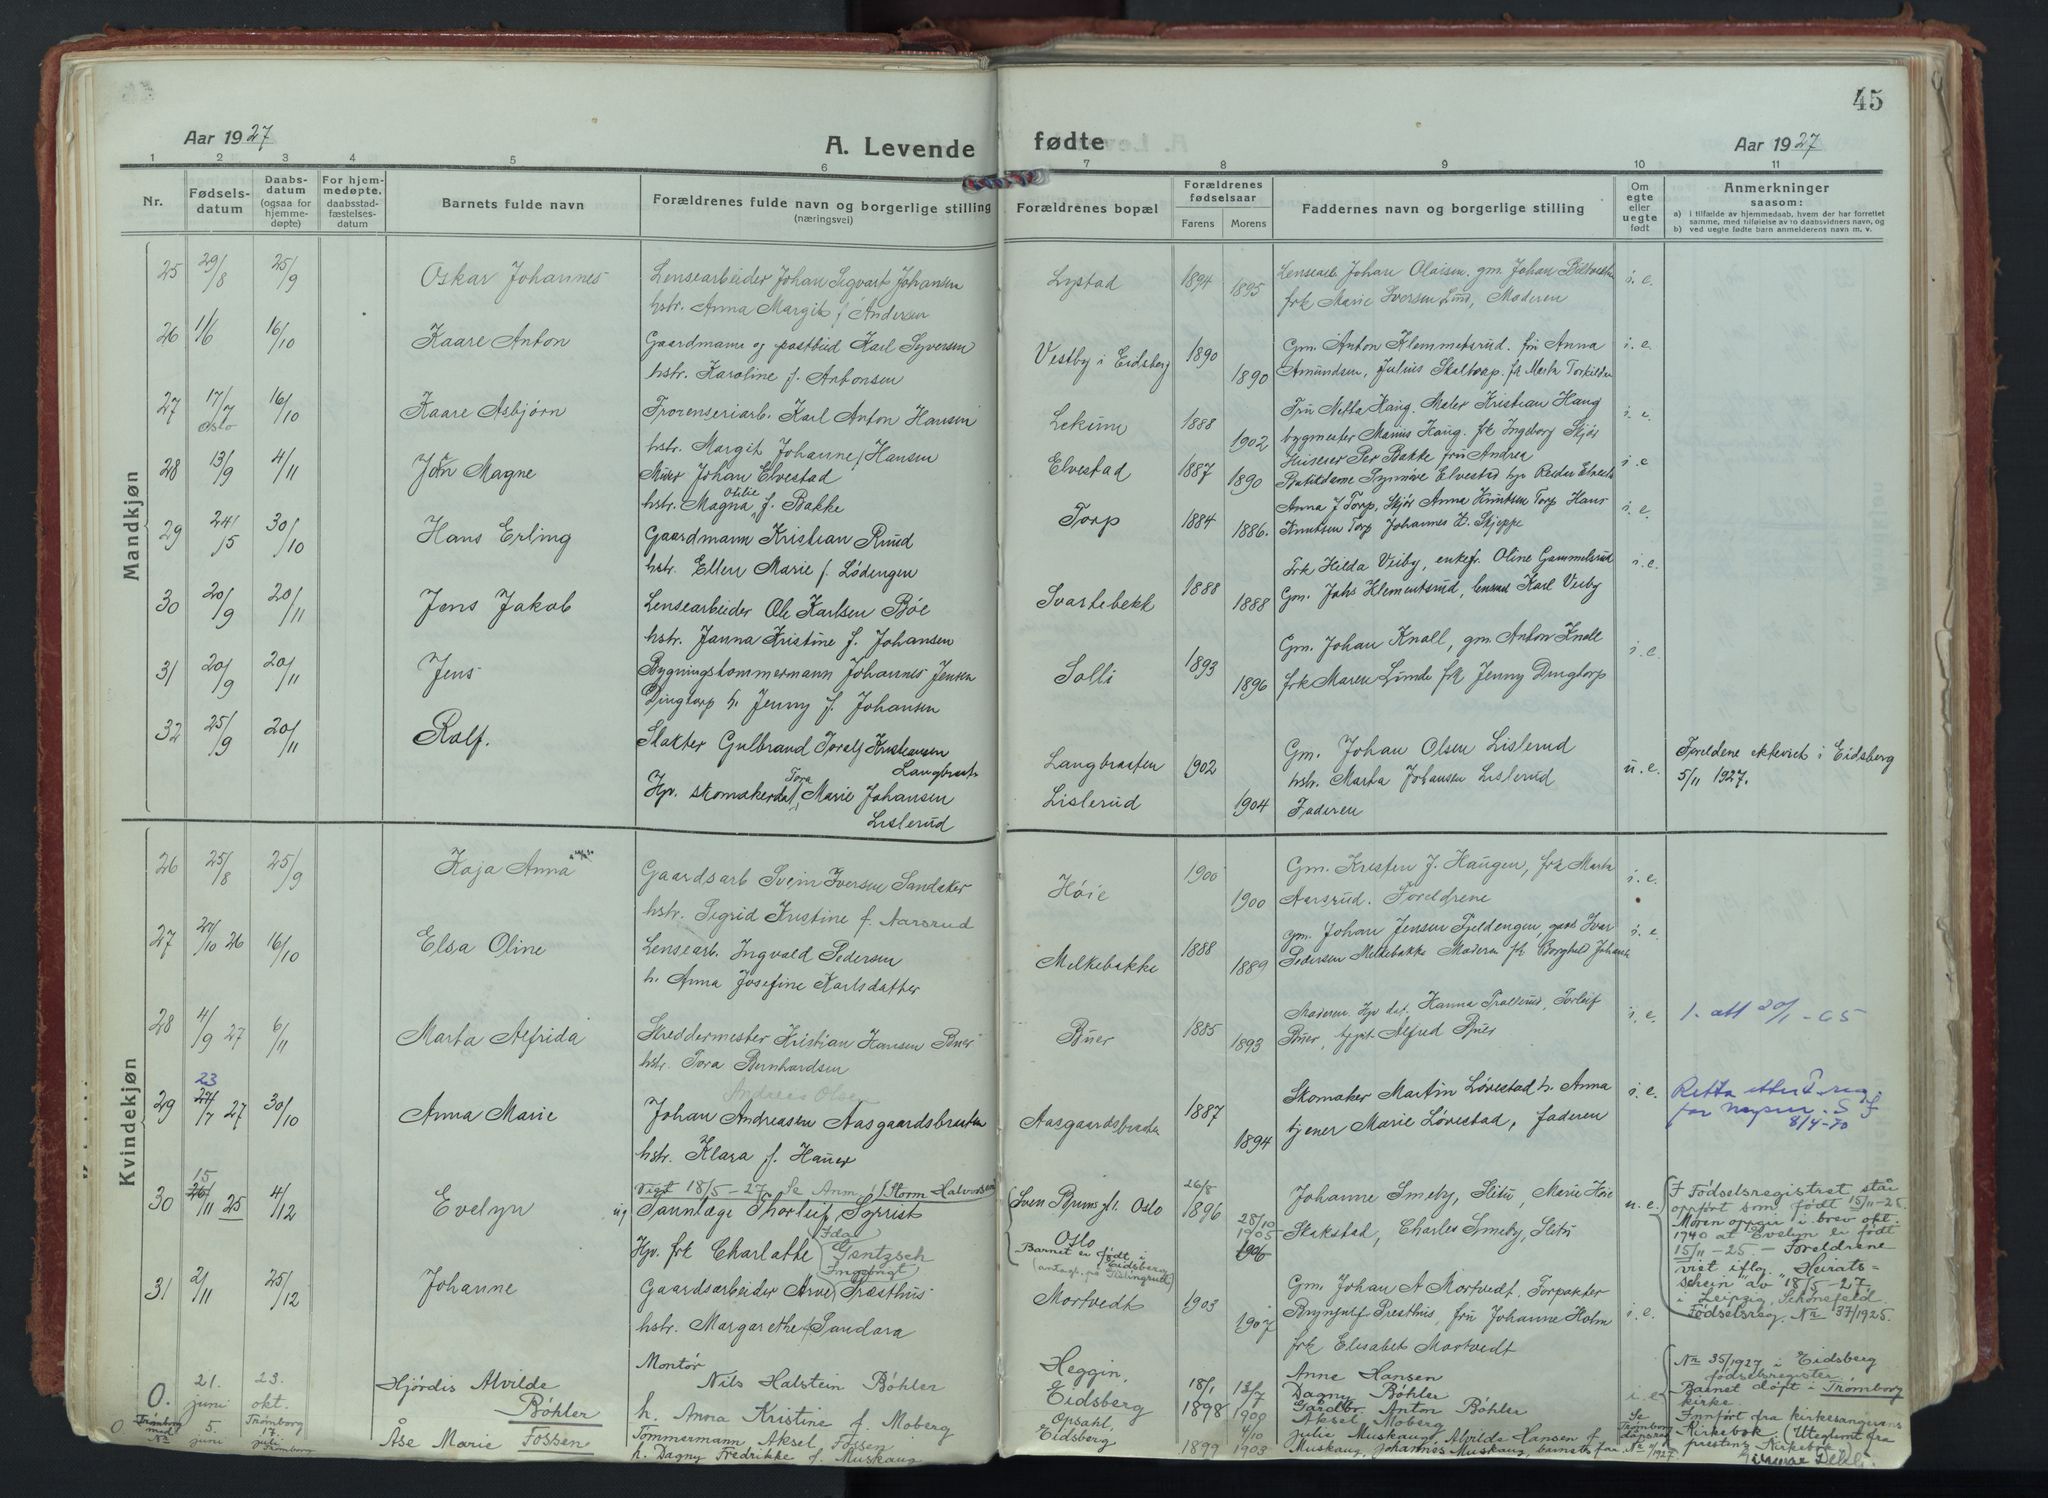 45
Aar 1927
A. Levende fødte
Aar 1927
1 2 3 4 5 6 7 8 9 10 11
Nr.
Fødsels-
datum
Daabs-
datum
(ogsaa for
hjemme-
døpte)
For hjem-
medøpte,
daabsstad-
fæstelses-
datum
Barnets fulde navn
Forældrenes fulde navn og borgerlige stilling
(næringsvei)
Forældrenes bopæl
Forældrenes
fødselsaar
Farens Morens
Faddernes navn og borgerlige stilling
Om
egte
eller
uegte
født
Anmerkninger
saasom:
a) i tilfælde av hjemmedaab, hvem der har forrettet
samme, med tilføielse av to daabsvidners navn, og
b) ved uegte fødte barn anmelderens navn m. v.
Mandkjøn
25 29/8 25/9 Oskar Johannes Lensearbeider Johan Sigvart Johansen Lystad 1894 1895 Lensearb. Johan Olaisen. gm. Johan i. e.
hstr. Anna Margit f. Andersen frk Marie Iversen Lund, Moderen
26 1/6 16/10 Kaare Anton Gaardmann og postbud Karl Syversen Vestby i Eidsberg 1890 Gm. Anton Klemmetsrud. fru Anna i. e.
hstr. Karoline f. Antonsen 1890 Amundsen, Julius Skaltorp. frk Marta Torkildsen
27 17/7 Oslo 16/10 Kaare Asbjørn Karl Anton Hansen Lekum 1888 Fru Netta Haug. Maler Kristian Haug i. e.
hstr. Margit Johanne f. Hansen 1902 bygmester Marius Haug. frk Ingeborg Skjør
28 13/9 4/11 Jon Magne Murer Johan Elvestad Elvestad 1887 Huseier Per Bakke, fru Andrea i. e.
hstr. Magna Otilie f. Bakke 1890 Synnøve Elvestad
29 24/5 30/10 Hans Erling Gaardmann Kristian Ruud Torp 1884 Anna J. Torp, Skjør Anna Knutsen Torp Hans i. e.
hstr. Ellen Marie f. Lødengen 1886. Knutsen Torp Johannes E. Skjeppe
30 20/9 20/11 Jens Jakob Lensearbeider Ole Karlsen Bøe Svartebekk 1888 Frk Hilda Veiby, enkefr. Oline Gammelsrud i. e.
hstr. Janna Kristine f. Johansen 1888 Gm. Johs Klementsrud, Karl Veiby
31 20/9 20/11 Jens Bygningstømmermann Johannes Jensen Solli 1893 Gm. Johan Knoll, gm. Anton Knoll i. e.
Dingtorp h. Jenny f. Johansen 1896 frk Maren Lunde frk Jenny Dingtorp
32 25/9 20/11 Rolf. Slakter Gulbrand Toralf Kristiansen Langbraaten Langbraaten 1902 Gm. Johan Olsen Lislerud u. e. Foreldene ekteviet i Eidsberg
Hjv. skomakerdat. Tora Marie Johansen Lislerud Lislerud 1904 hstr. Marta Johansen Lislerud 5/11 1927.
Faderen
Kvindekjøn
26 25/8 25/9 Kaja Anna Gaardsarb Svein Iversen Sandaker Høie 1900 Gm. Kristen J. Haugen, frk Marta i. e.
hstr. Sigrid Kristine f. Aarsrud 1900 Aarsrud. Foreldrene
27 27/10 26 16/10 Elsa Oline Lensearb. Ingvald Pedersen Melkebakke 1888 gm. Johan Jensen Fjeldengen, Ivar i. e.
h. Anna Josefine Karlsdatter 1889 Pedersen Melkebakke Moderen frk Borghild Johansen
28 4/9 27 6/11 Marta Alfrida Skreddermester Kristian Hansen Buer Buer 1885 Moderen. Hjv dat. Hanna Torleif i. e. 1. att 20/1-65
hstr. Tora Bernhardsen 1893 Buer, Alfred Buer
29 23 27/7 27 30/10 Anna Marie Andreas Olsen
Johan Andreasen Aasgaardsbraaten Aasgaardsbraaten 1887 Skomaker Martin Løvestad h. Anna i. e. Retta etter F.reg.
hstr. Klara f. Hauer 1894 tjener Marie Løvestad, faderen for S F
8/4-70
30 15 26/11 25 4/12 Evelyn Vigt 18/5-27. Se Anm. (Storm Halvorsen
Tannlæge Thorleif Syvrist Sven Bruns gt. Oslo 26/8 1896 Johanne Smeby, Slitu, Marie Høie u. e.
Hjv. frk Charlotte Ida Gentzsch Ingeongt Oslo 28/10 1905 1906 Slakstad, Charles Smeby, Slitu
Barnet er født i Eidsberg
F Fødselsregistret står
oppført som født 15/11-25.
Moren oppgir i brev okt.
1940 at Evelyn er født
15/11-25. - Foreldrene
viet iflg. "Heirats-
schein" av 18/5-27
i Leipzig, Schönefeld
Fødselsreg. Nr 37/1925.
31 2/11 25/12 Johanne Gaardsarbeider Arve Præsthus Mortvedt 1903 Gm. Johan A Mortvedt, Forpakter
hstr. Margarethe f. Sandara 1907 Brynjulf Presthus, fru Johanne Holm i. e.
frk Elisabet Mortvedt
0. 21. juni 23. okt. Trømborg Hjördis Alvilde Böhler Montör Nils Halstein Böhler Heggin, Eidsberg 18/1 1898 13/7 1900 Anne Hansen
h. Anna Kristine f. Moberg Dagny Böhler i. e
Gårdbr. Anton Böhler
Aksel Moberg
Nr 35/1927 i Eidsberg
födselsregister
Barnet döpt i Trømborg
kirke
Innført fra kirkesangerens
Kirkebok. (Uteglemt fra
prestens Kirkebok)
0 Trömborg med Nr 5. juni 17. juli Trömborg Åse Marie Fossen Tømmermann Aksel Fossen Opsahl, Eidsberg 1899 4/10 1903 Julie Muskaug, Alvilde Hansen f.
h. Dagny Fredrikke f. Muskaug Muskaug, Johannes Muskaug, barnets far Se Trömborg dåpsreg Nr 11/1927.